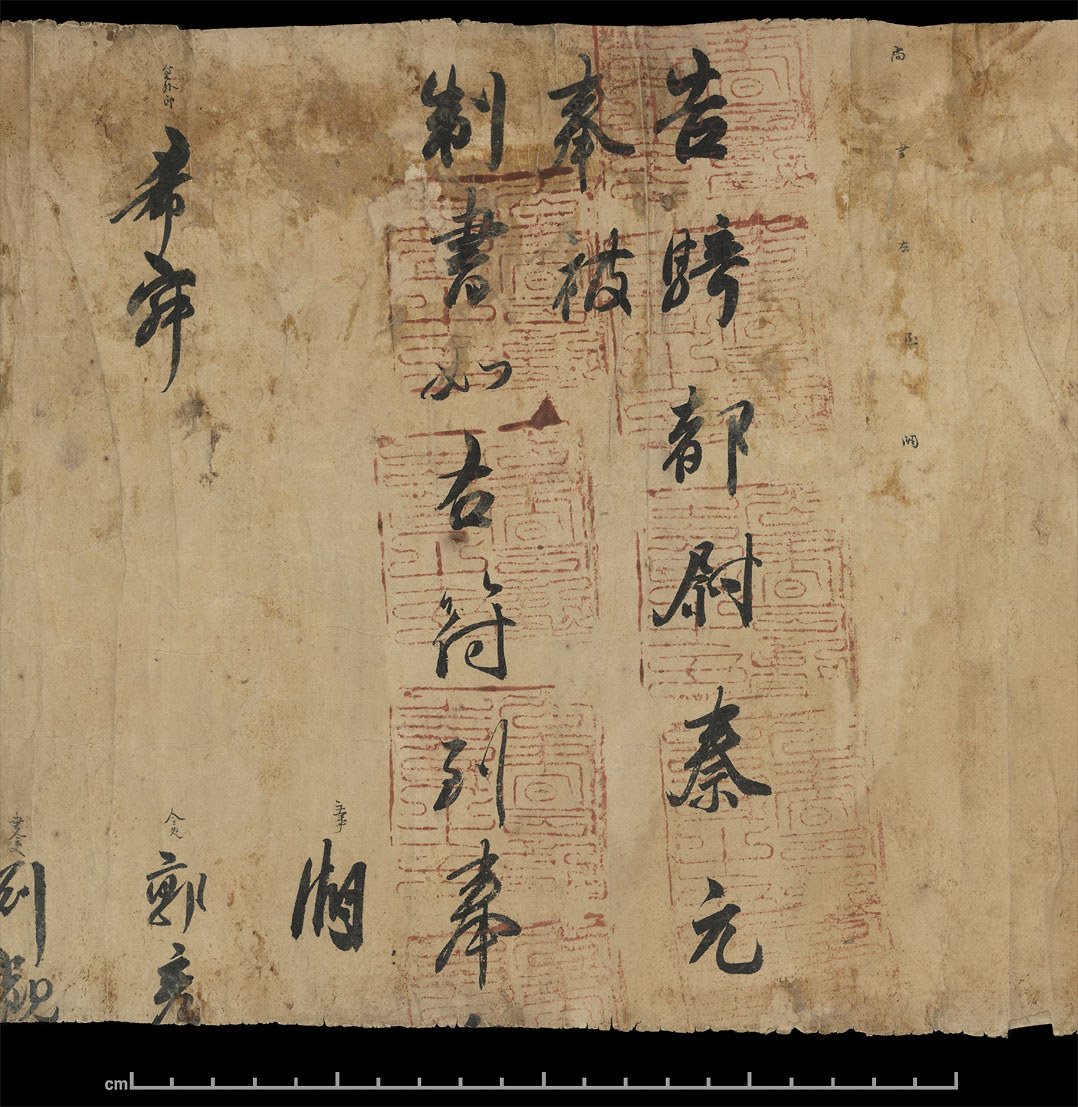 尚書左丞闕
告騎都尉秦元
奉被
制書如右符到奉
主事
員外郎 希
令史 鄭彦
書令史 劉觀